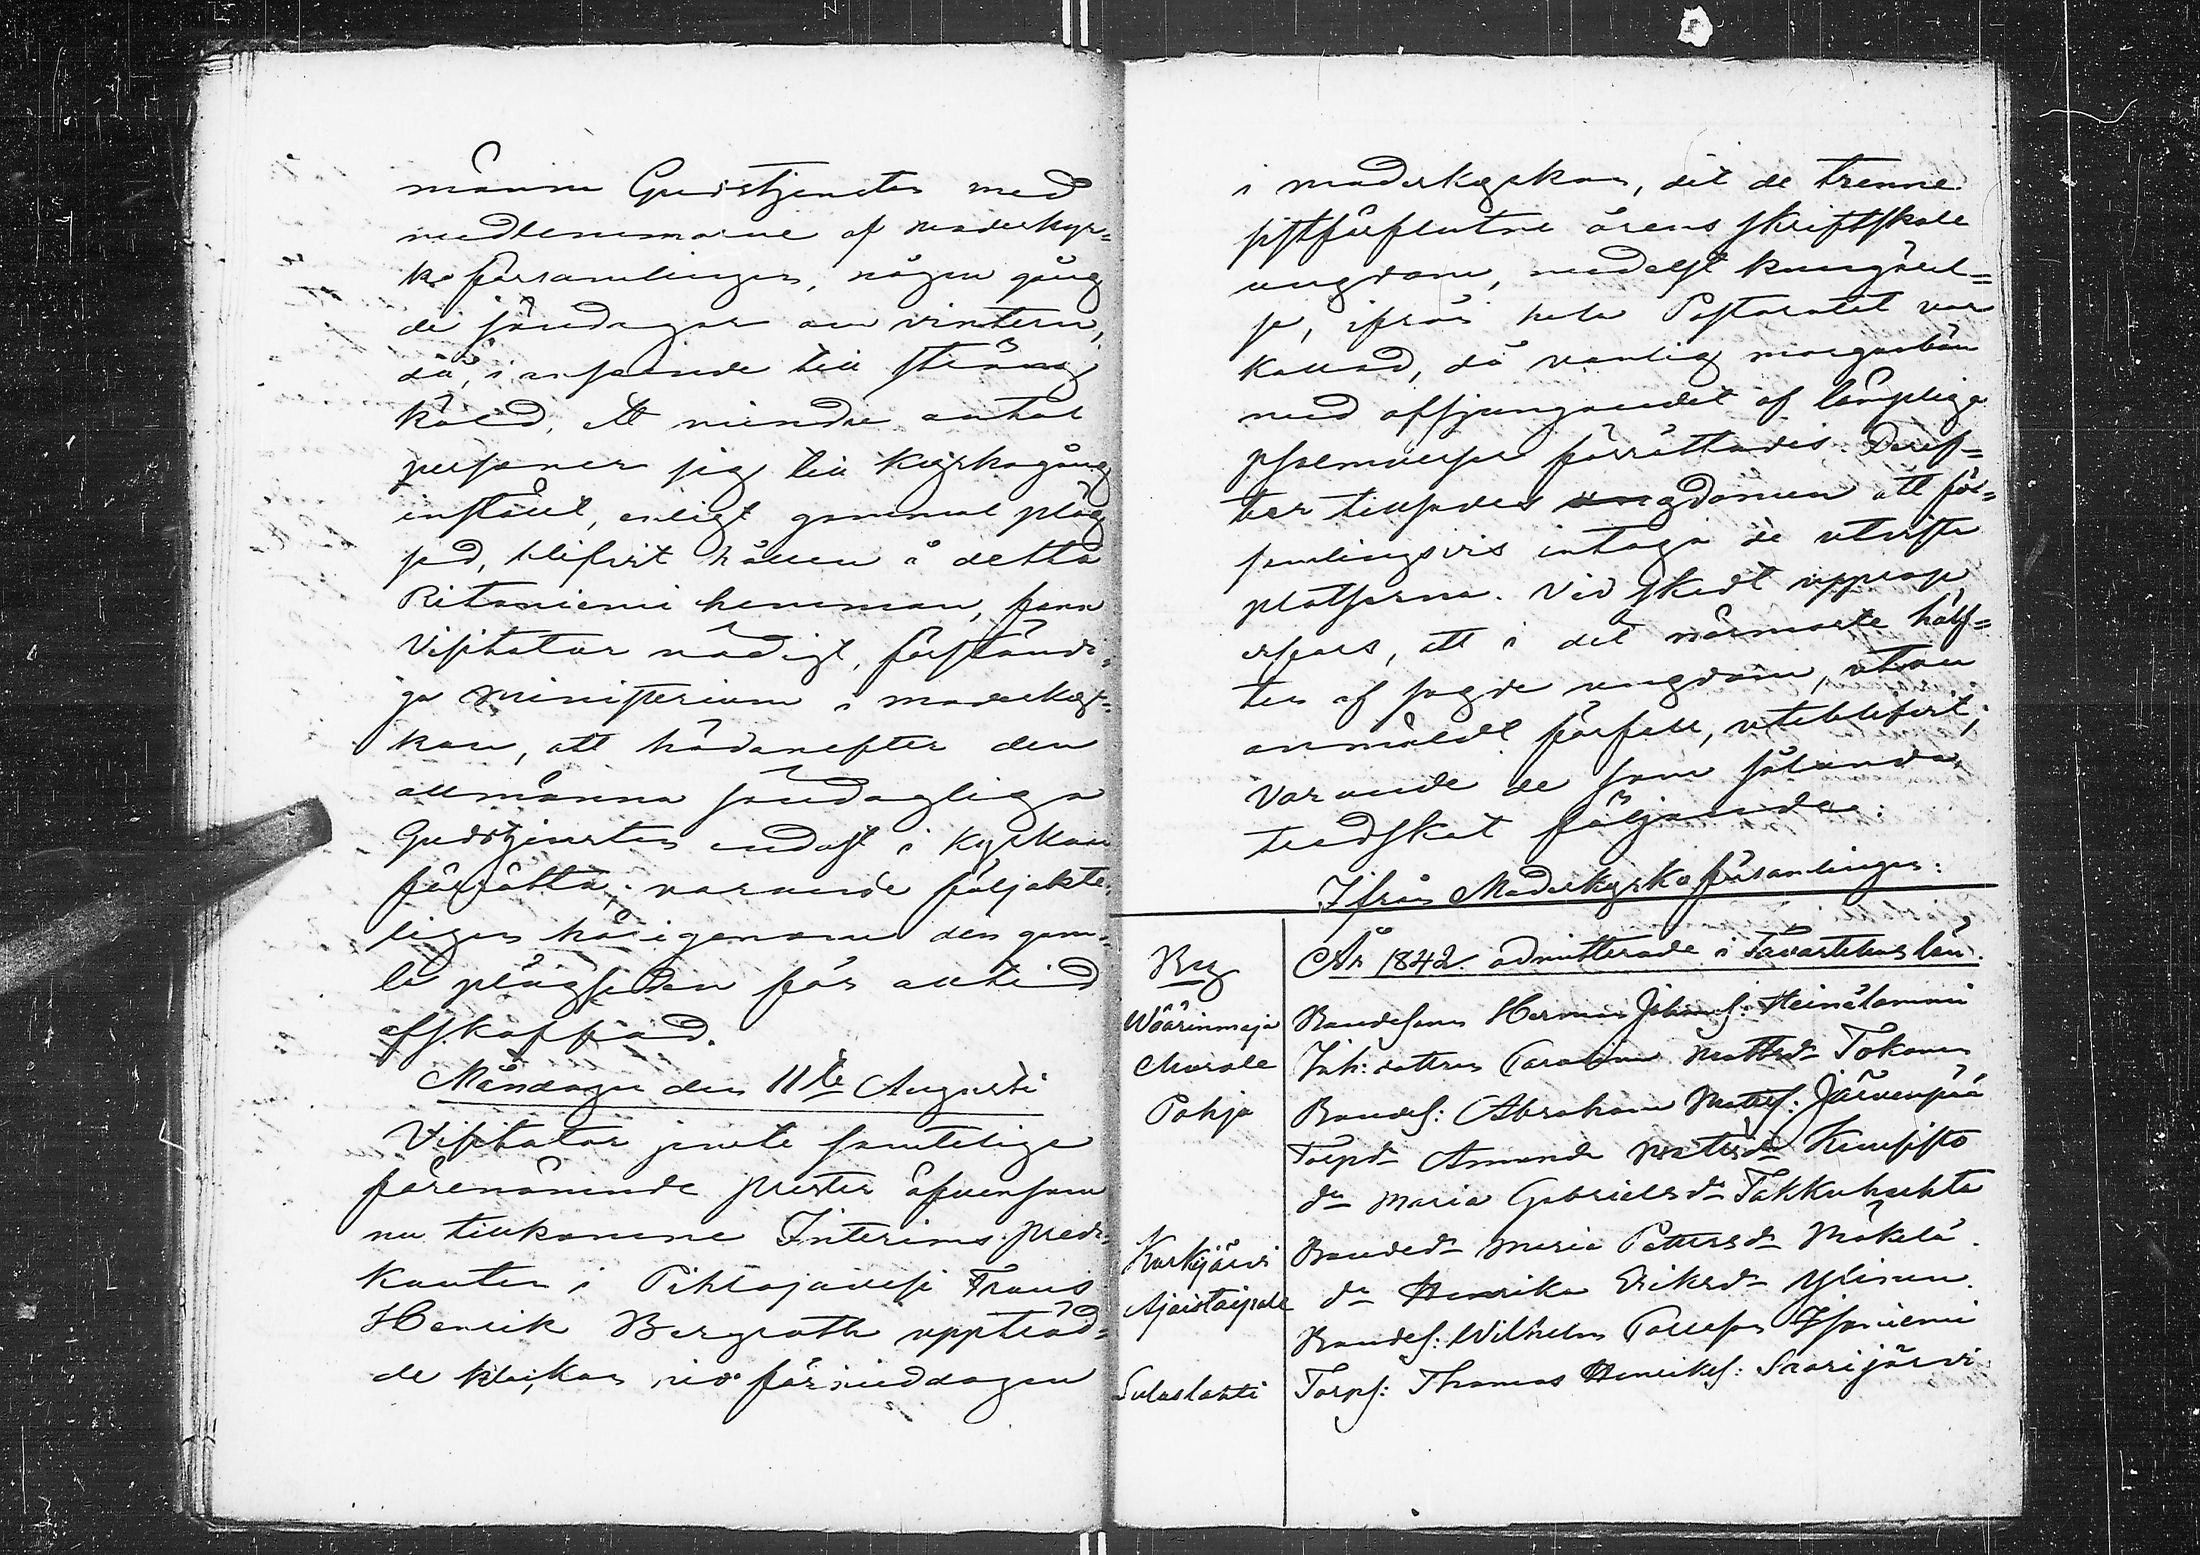 männa Gudstjensten med
medlemmarne af moderkyr=
ko församlingen, någon gång
de söndagar om vintern,
då, i anseende till sträng
köld, ett mindre antal
personer sig till Kyrkogång
inställt, enligt gammal pläg
sed, blifvit hållen å detta
Ritoniemi hemman, fann
Visitator nödigt, förständi=
ga Ministerium i moderkyr=
kan, att hädanefter den
allmänna söndagliga
Gudstjensten endast i Kyrkan
förrätta; varande följakte=
ligen härigenom den gam=
la plägseden för alltid
afskaffad.
Måndagen den 11te Augusti
Visitator jemte samtelige
förenämnde prester äfvensom
nu tillkomne Interims predi=
kanten i Pihlajavesi Frans
Henrik Bergroth uppträd=
de klockan nio förmiddagen
i moderkyrkan, dit de trenne
sistförflutne årens skriftskole
ungdom, medelst kungörel=
se, ifrån hela Pastoratet var
kallad, då vanlig morgonbön
med afsjungandet af lämplige
psalmverser förrättades. Deref=
ter tillsades ungdomen att för=
samlingsvis intaga de utviste
platserna. Vid skedt upprop
erfors, att i det närmaste hälf=
ten af sagde ungdom, utan
anmäldt förfall, uteblifvit;
varande de som sålunda
tredskat följande:
Ifrån Moderkyrko församlingen:
By
År 1842 admitterade i Tavastehus län.
Wäärinmaja Bondesonen Herman Johans: Heinälammi
Murole Inh: dottren Carolina Mattsdr Tokonen
Pohja Bondes: Abraham Mattss: Järvenpää
Torpdr Amanda Mattsdr Kuusisto
dr Maria Gabrielsdr Takkuhaahta
Kurkijärvi Bondedr Maria Pettersdr Mäkelä.
Ajostaipale dr Henrika Eriksdr Ylinen.
Bondes: Wilhelm Carlsson Isoniemi
Sulaslahti Torps: Thomas Henrikss: Saarijärvi